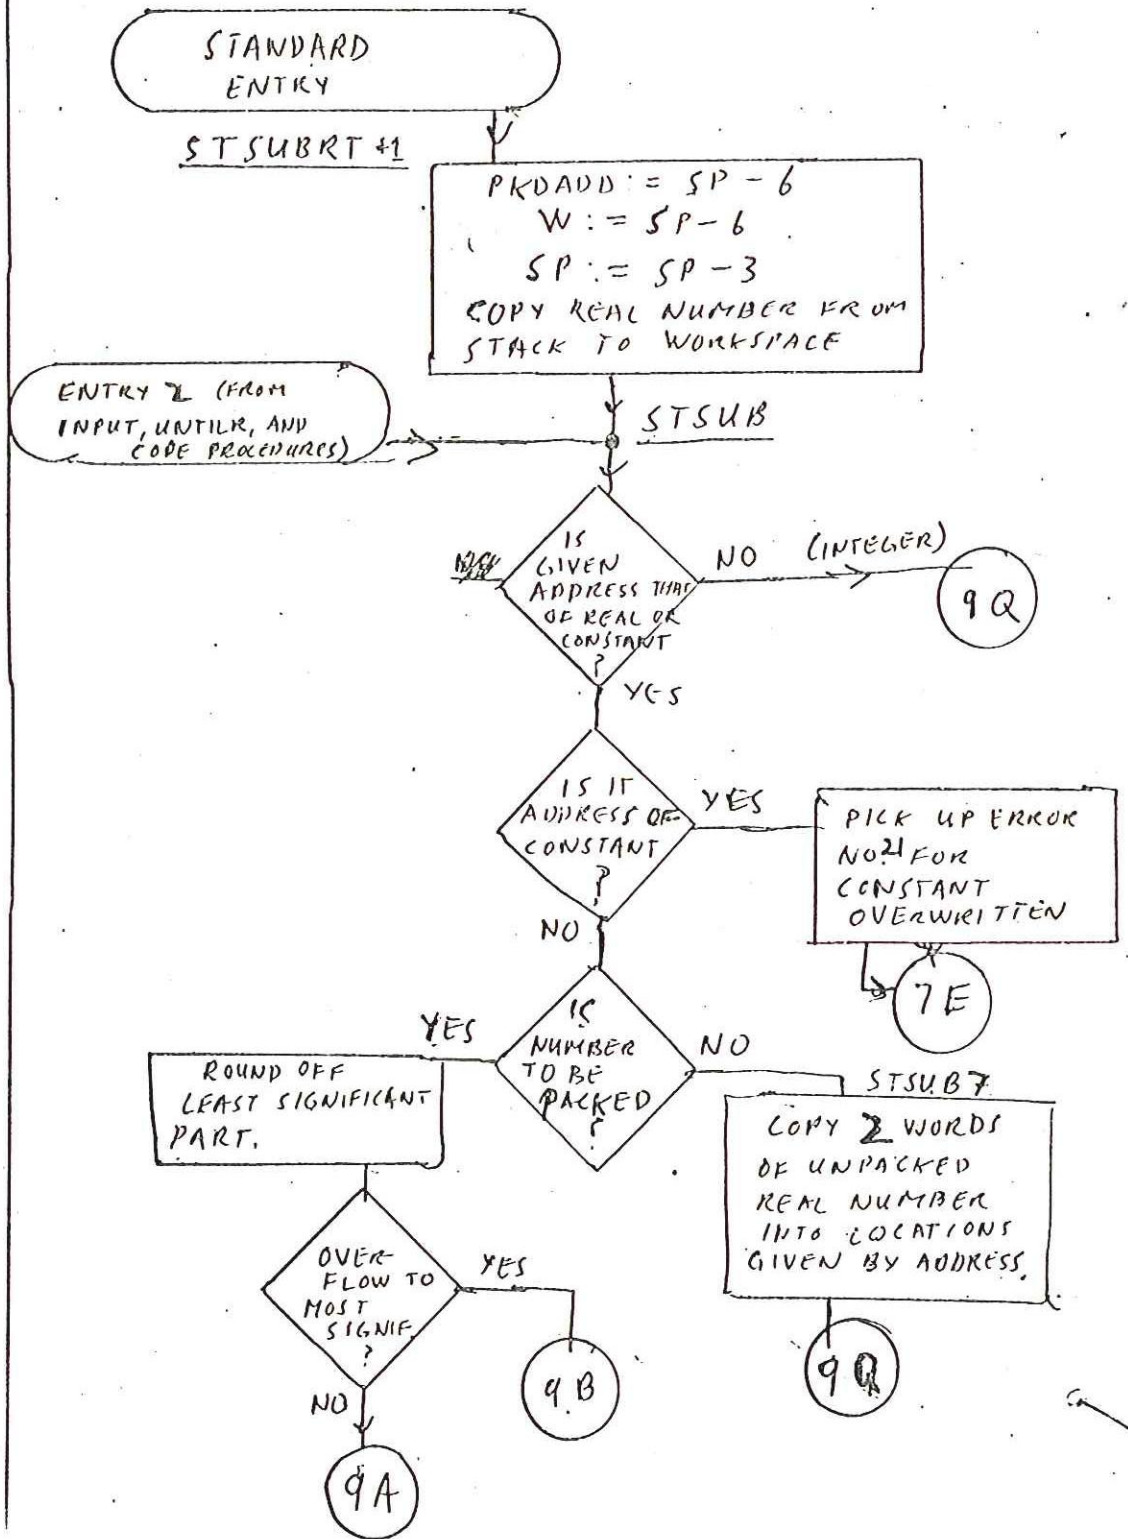 STANDARD
ENTRY
STSUBRT+1
PKDADD := SP - 6
W := SP - 6
SP := SP - 3
COPY REAL NUMBER FROM
STACK TO WORKSPACE
ENTRY 2 (FROM
INPUT, UNTILR, AND
CODE PROCEDURES)
STSUB
IS
GIVEN
ADDRESS THAT
OF REAL OR
CONSTANT
?
NO (INTEGER)
9Q
YES
IS IT
ADDRESS OF
CONSTANT
?
YES
PICK UP ERROR
NO. 21 FOR
CONSTANT
OVERWRITTEN
7E
NO
IS
NUMBER
TO BE
PACKED
?
YES
NO
ROUND OFF
LEAST SIGNIFICANT
PART.
STSUB7
COPY 2 WORDS
OF UNPACKED
REAL NUMBER
INTO LOCATIONS
GIVEN BY ADDRESS.
OVER-
FLOW TO
MOST
SIGNIF.
?
YES
9B
9Q
NO
9A